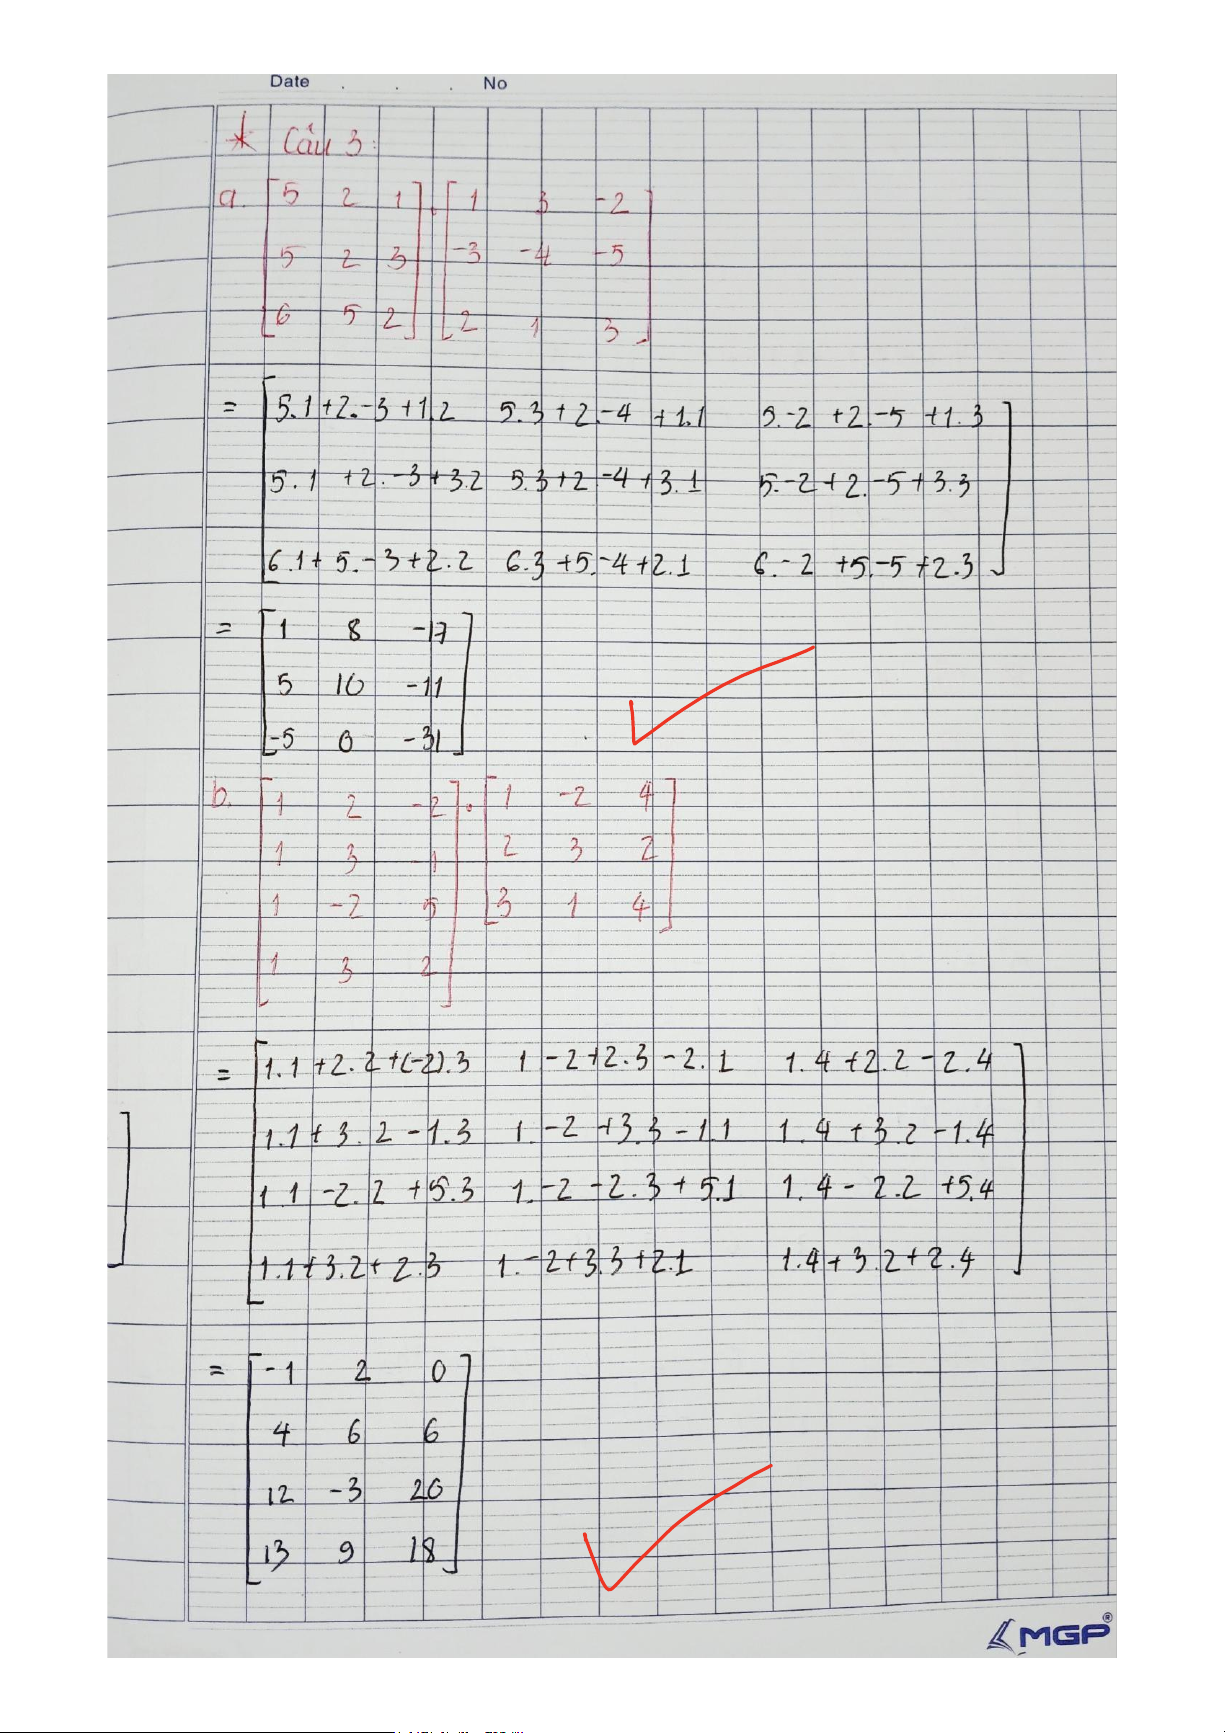 Date . . . No
* Câu 3:
a. [5 2 1] . [1 3 -2]
[5 2 3] [-3 -4 -5]
[6 5 2] [2 1 3]
= [5.1+2.-3+1.2 5.3+2.-4+1.1 5.-2+2.-5+1.3]
[5.1+2.-3+3.2 5.3+2-4+3.1 5.-2+2.-5+3.3]
[6.1+5.-3+2.2 6.3+5.-4+2.1 6.-2+5.-5+2.3]
= [1 8 -17]
[5 10 -11]
[-5 0 -31]
b. [1 2 -2] . [1 -2 4]
[1 3 -1] [2 3 2]
[1 -2 5] [3 1 4]
[1 3 2]
= [1.1+2.2+(-2).3 1-2+2.3-2.1 1.4+2.2-2.4]
[1.1+3.2-1.3 1.-2+3.3-1.1 1.4+3.2-1.4]
[1.1-2.2+5.3 1.-2-2.3+5.1 1.4-2.2+5.4]
[1.1+3.2+2.3 1.-2+3.3+2.1 1.4+3.2+2.4]
= [-1 2 0]
[4 6 6]
[12 -3 20]
[13 9 18]
MGP®